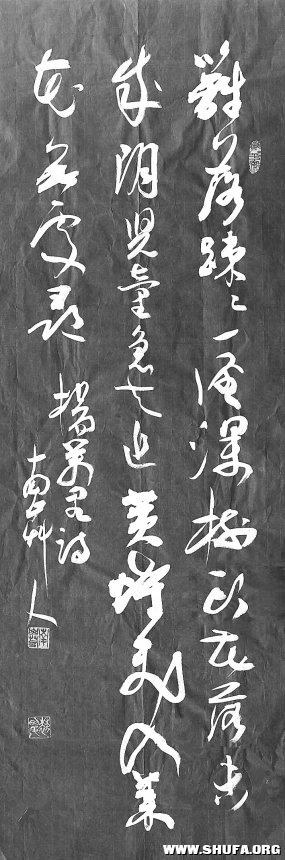 籬落疎々一徑深樹頭花落未
成陰兒童急走追黃蝶飛入菜
花無處尋
楊萬里詩
南山艸人
WWW.SHUFA.ORG